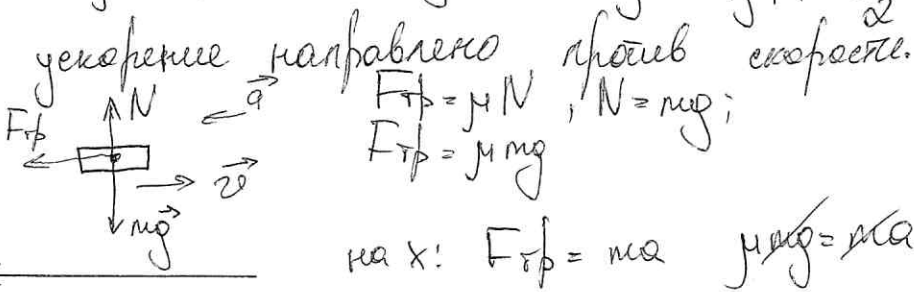 2
ускорение направлено против скорости.
N
a⃗
Fтр
v⃗
mg⃗
Fтр = μN , N = mg;
Fтр = μmg
на x: Fтр = ma μmg = ma